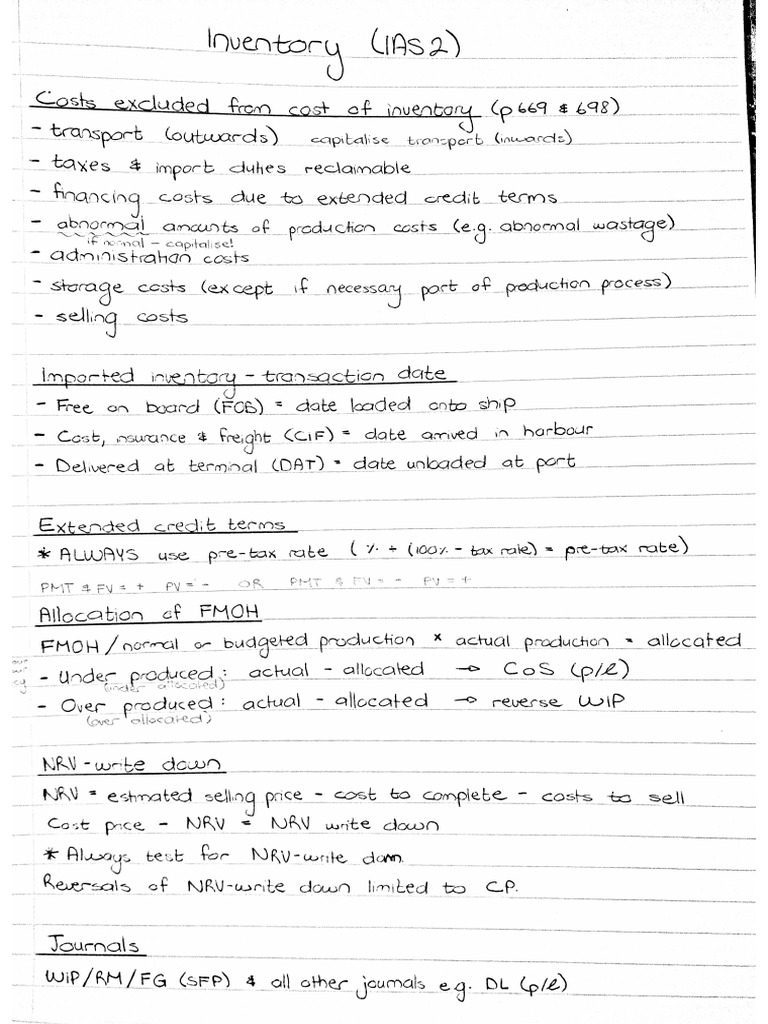 Inventory (IAS2)
Costs excluded from cost of inventory (p669 & 698)
- transport (outwards) capitalise transport (inwards)
- taxes & import duties reclaimable
- financing costs due to extended credit terms
- abnormal amounts of production costs (e.g. abnormal wastage)
if normal - capitalise!
- administration costs
- storage costs (except if necessary part of production process)
- selling costs
Imported inventory - transaction date
- Free on board (FOB) = date loaded onto ship
- Cost, insurance & freight (CIF) = date arrived in harbour
- Delivered at terminal (DAT) = date unloaded at port
Extended credit terms
* ALWAYS use pre-tax rate ( % ÷ (100% - tax rate) = pre-tax rate)
PMT & FV = + PV = - OR PMT & FV = - PV = +
Allocation of FMOH
FMOH / normal or budgeted production * actual production = allocated
- Under produced : actual - allocated → CoS (p/l)
(under allocated)
- Over produced : actual - allocated → reverse WiP
(over allocated)
NRV - write down
NRV = estimated selling price - cost to complete - costs to sell
Cost price - NRV = NRV write down
* Always test for NRV-write down.
Reversals of NRV-write down limited to CP.
Journals
WiP/RM/FG (SFP) & all other journals e.g. DL (p/l)